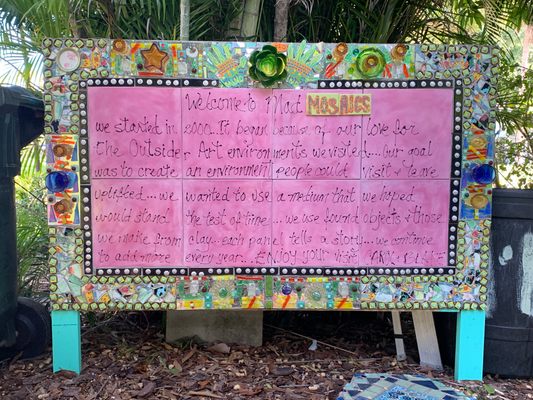 Welcome to Mad MOSAICS
we started in 2000..It began because of our love for
the Outsider Art environments we visited...our goal
was to create an environment people could visit & leave
uplifted...we wanted to use a medium that we hoped
would stand the test of time...we use found objects & those
we make from clay...each panel tells a story...we continue
to add more every year...ENJOY your visit